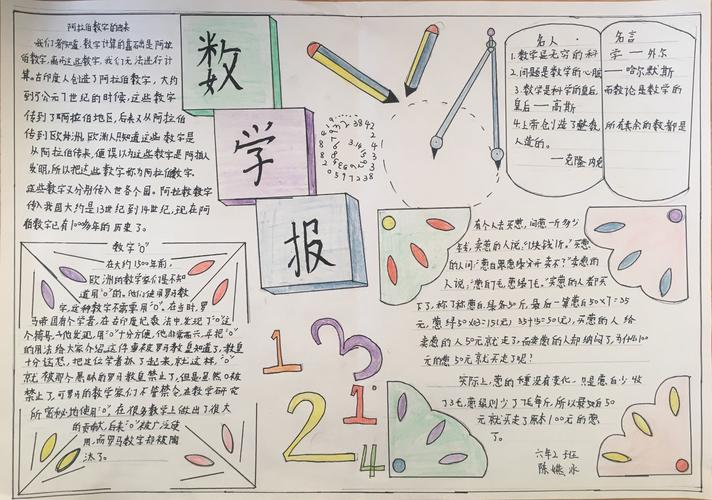 阿拉伯数字的由来
我们都知道,数学计算的基础是阿拉
伯数字,离开这些数字,我们无法进行计
算。古印度人创造了阿拉伯数字,大约
到了公元7世纪的时候,这些数字
传到了阿拉伯地区,后来又从阿拉伯
传到欧洲,欧洲人只知道这些数字是
从阿拉伯传来,便误以为这些数字是阿拉人
发明,所以把这些数字称为阿拉伯数字,
这些数字又分别传入世各个国。阿拉数数字
传入我国大约是13世纪到14世纪,现在阿
伯数字已有100多年的历史了。
数字"0"
在大约1500年前,
欧洲的数学家们是不知
道用"0"的。他们使用罗马数
字,这种数字不需要用"0"。在当时,罗
马帝国有个学者,在古印度记数法中,发现了"0"这
个符号,
的用法给大家介绍,这件事被罗马教皇知道了,教皇
十分恼怒,把这位学者抓了起来,就这样,"0"
就被那个愚昧的罗马教皇禁止了,但是虽然0被
禁止了,可罗马的数学家们不管禁令,在数学研究
所密秘地使用"0",在很多数学上做出了很大
的贡献,后来"0"被广泛使
用,而罗马数字却被淘
汰了。
数
学
报
1
3
2
1
4
名人
1.数学是无穷的科
2.问题是数学的心脏
3.数学是科学的皇后
皇后——高斯
4.上帝创造了整数,
人造的。
——克隆内克
名言
学——外尔
——哈尔默斯
而数论是数学的
所有其余的数都是
有个人去买葱,问葱一斤多少
钱,卖葱的人说,1块钱1斤。买葱
的人问:葱白跟葱绿分开卖不?卖葱的
人说,葱白7毛,葱绿3毛。买葱的人都买
下了,称了称葱白,最后一算葱白50×7=35
元,葱绿50×3=15(元) 35+15=50(元),买葱的人给
卖葱的人50元就走了,而卖葱的人却纳闷了,为什么100
元的葱50元就买走了呢?
实际上,葱的斤重没有变化,只是葱白少收
了3毛,葱绿则少了7毛每斤,所以最后50
元就买走了原本100元的葱
了。
六年2班